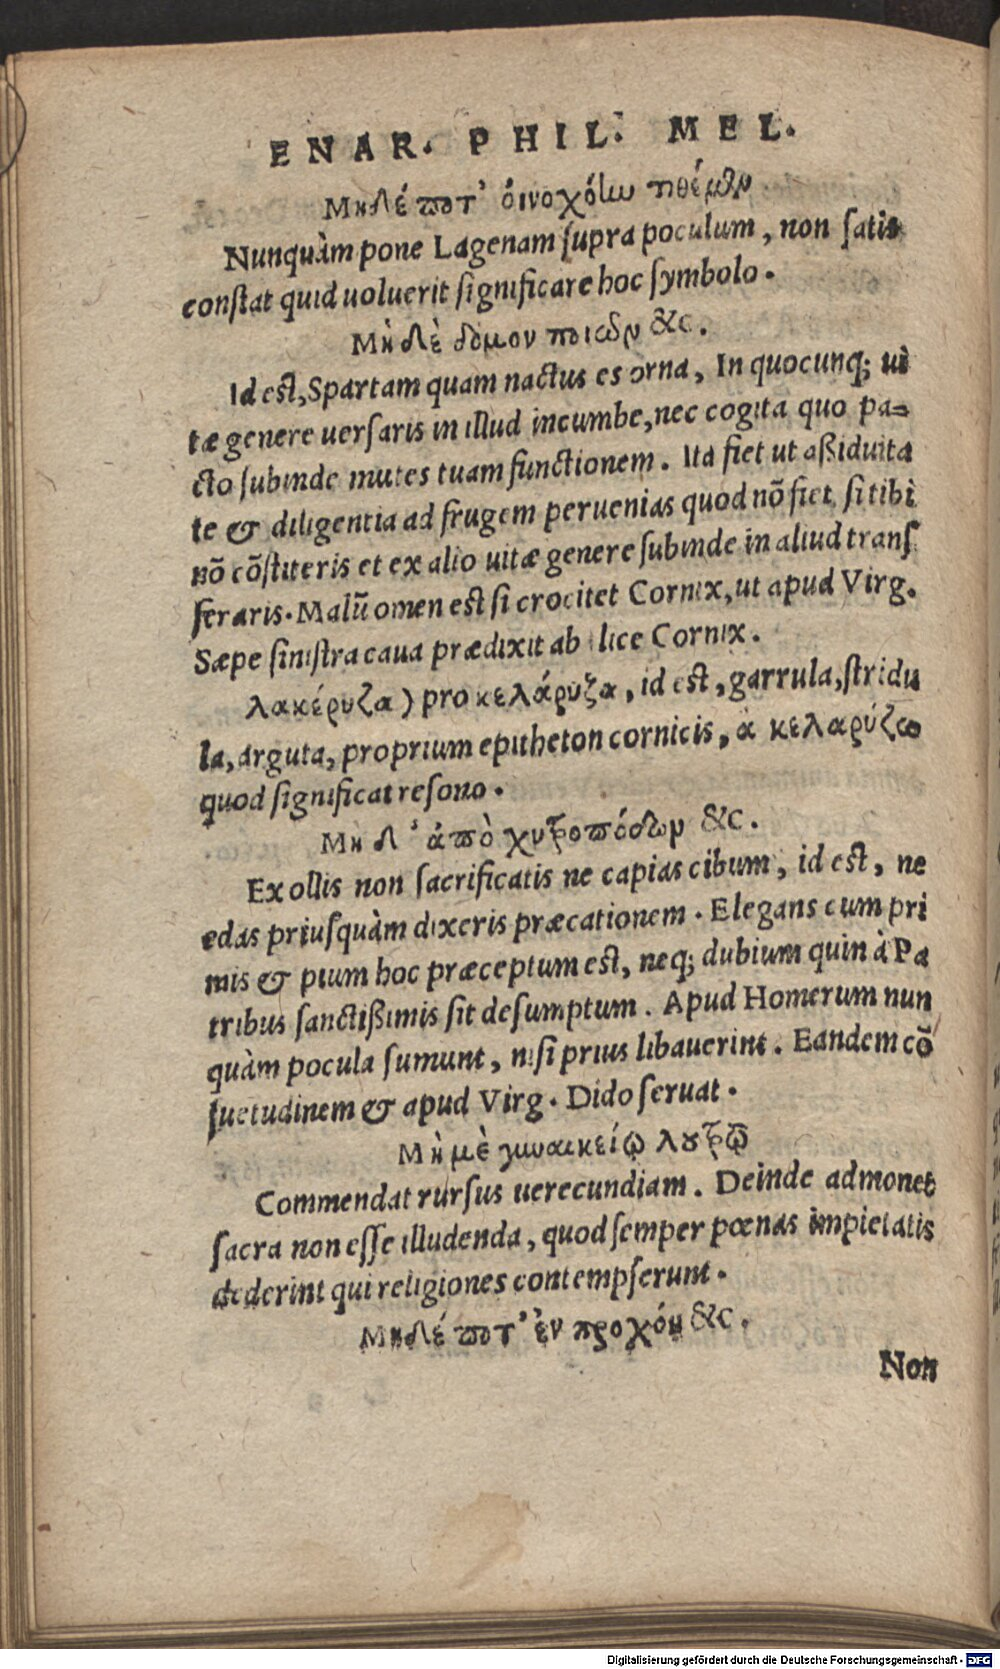 ENAR. PHIL. MEL.
Μηδέ ποτ' οἰνοχόην τιθέμεν
Nunquàm pone Lagenam supra poculum, non satis
constat quid uoluerit significare hoc symbolo.
Μὴ δὲ δόμον ποιῶν &c.
Id est, Spartam quam nactus es orna, In quocunq; ui
tæ genere uersaris in illud incumbe, nec cogita quo pa-
cto subinde mutes tuam functionem. Ita fiet ut aßiduita
te & diligentia ad frugem peruenias quod nō fiet, si tibi
nō cōstiteris et ex alio uitæ genere subinde in aliud trans
feraris. Malū omen est si crocitet Cornix, ut apud Virg.
Sæpe sinistra caua prædixit ab ilice Cornix.
λακέρυζα) pro κελάρυζα, id est, garrula, stridu
la, arguta, proprium epitheton cornicis, à κελαρύζω
quod significat resono.
Μὴ δ' ἀπὸ χυτροπόδων &c.
Ex ollis non sacrificatis ne capias cibum, id est, ne
edas priusquàm dixeris præcationem. Elegans cum pri
mis & pium hoc præceptum est, neq; dubium quin à Pa
tribus sanctißimis sit desumptum. Apud Homerum nun
quàm pocula sumunt, nisi prius libauerint. Eandem cō
suetudinem & apud Virg. Dido seruat.
Μὴ μὲ γυναικείῳ λουτρῷ
Commendat rursus uerecundiam. Deinde admonet
sacra non esse illudenda, quod semper pœnas impietatis
dederint qui religiones contempserunt.
Μηδέ ποτ' ἐν προχόῃ &c.
Non
Digitalisierung gefördert durch die Deutsche Forschungsgemeinschaft - DFG